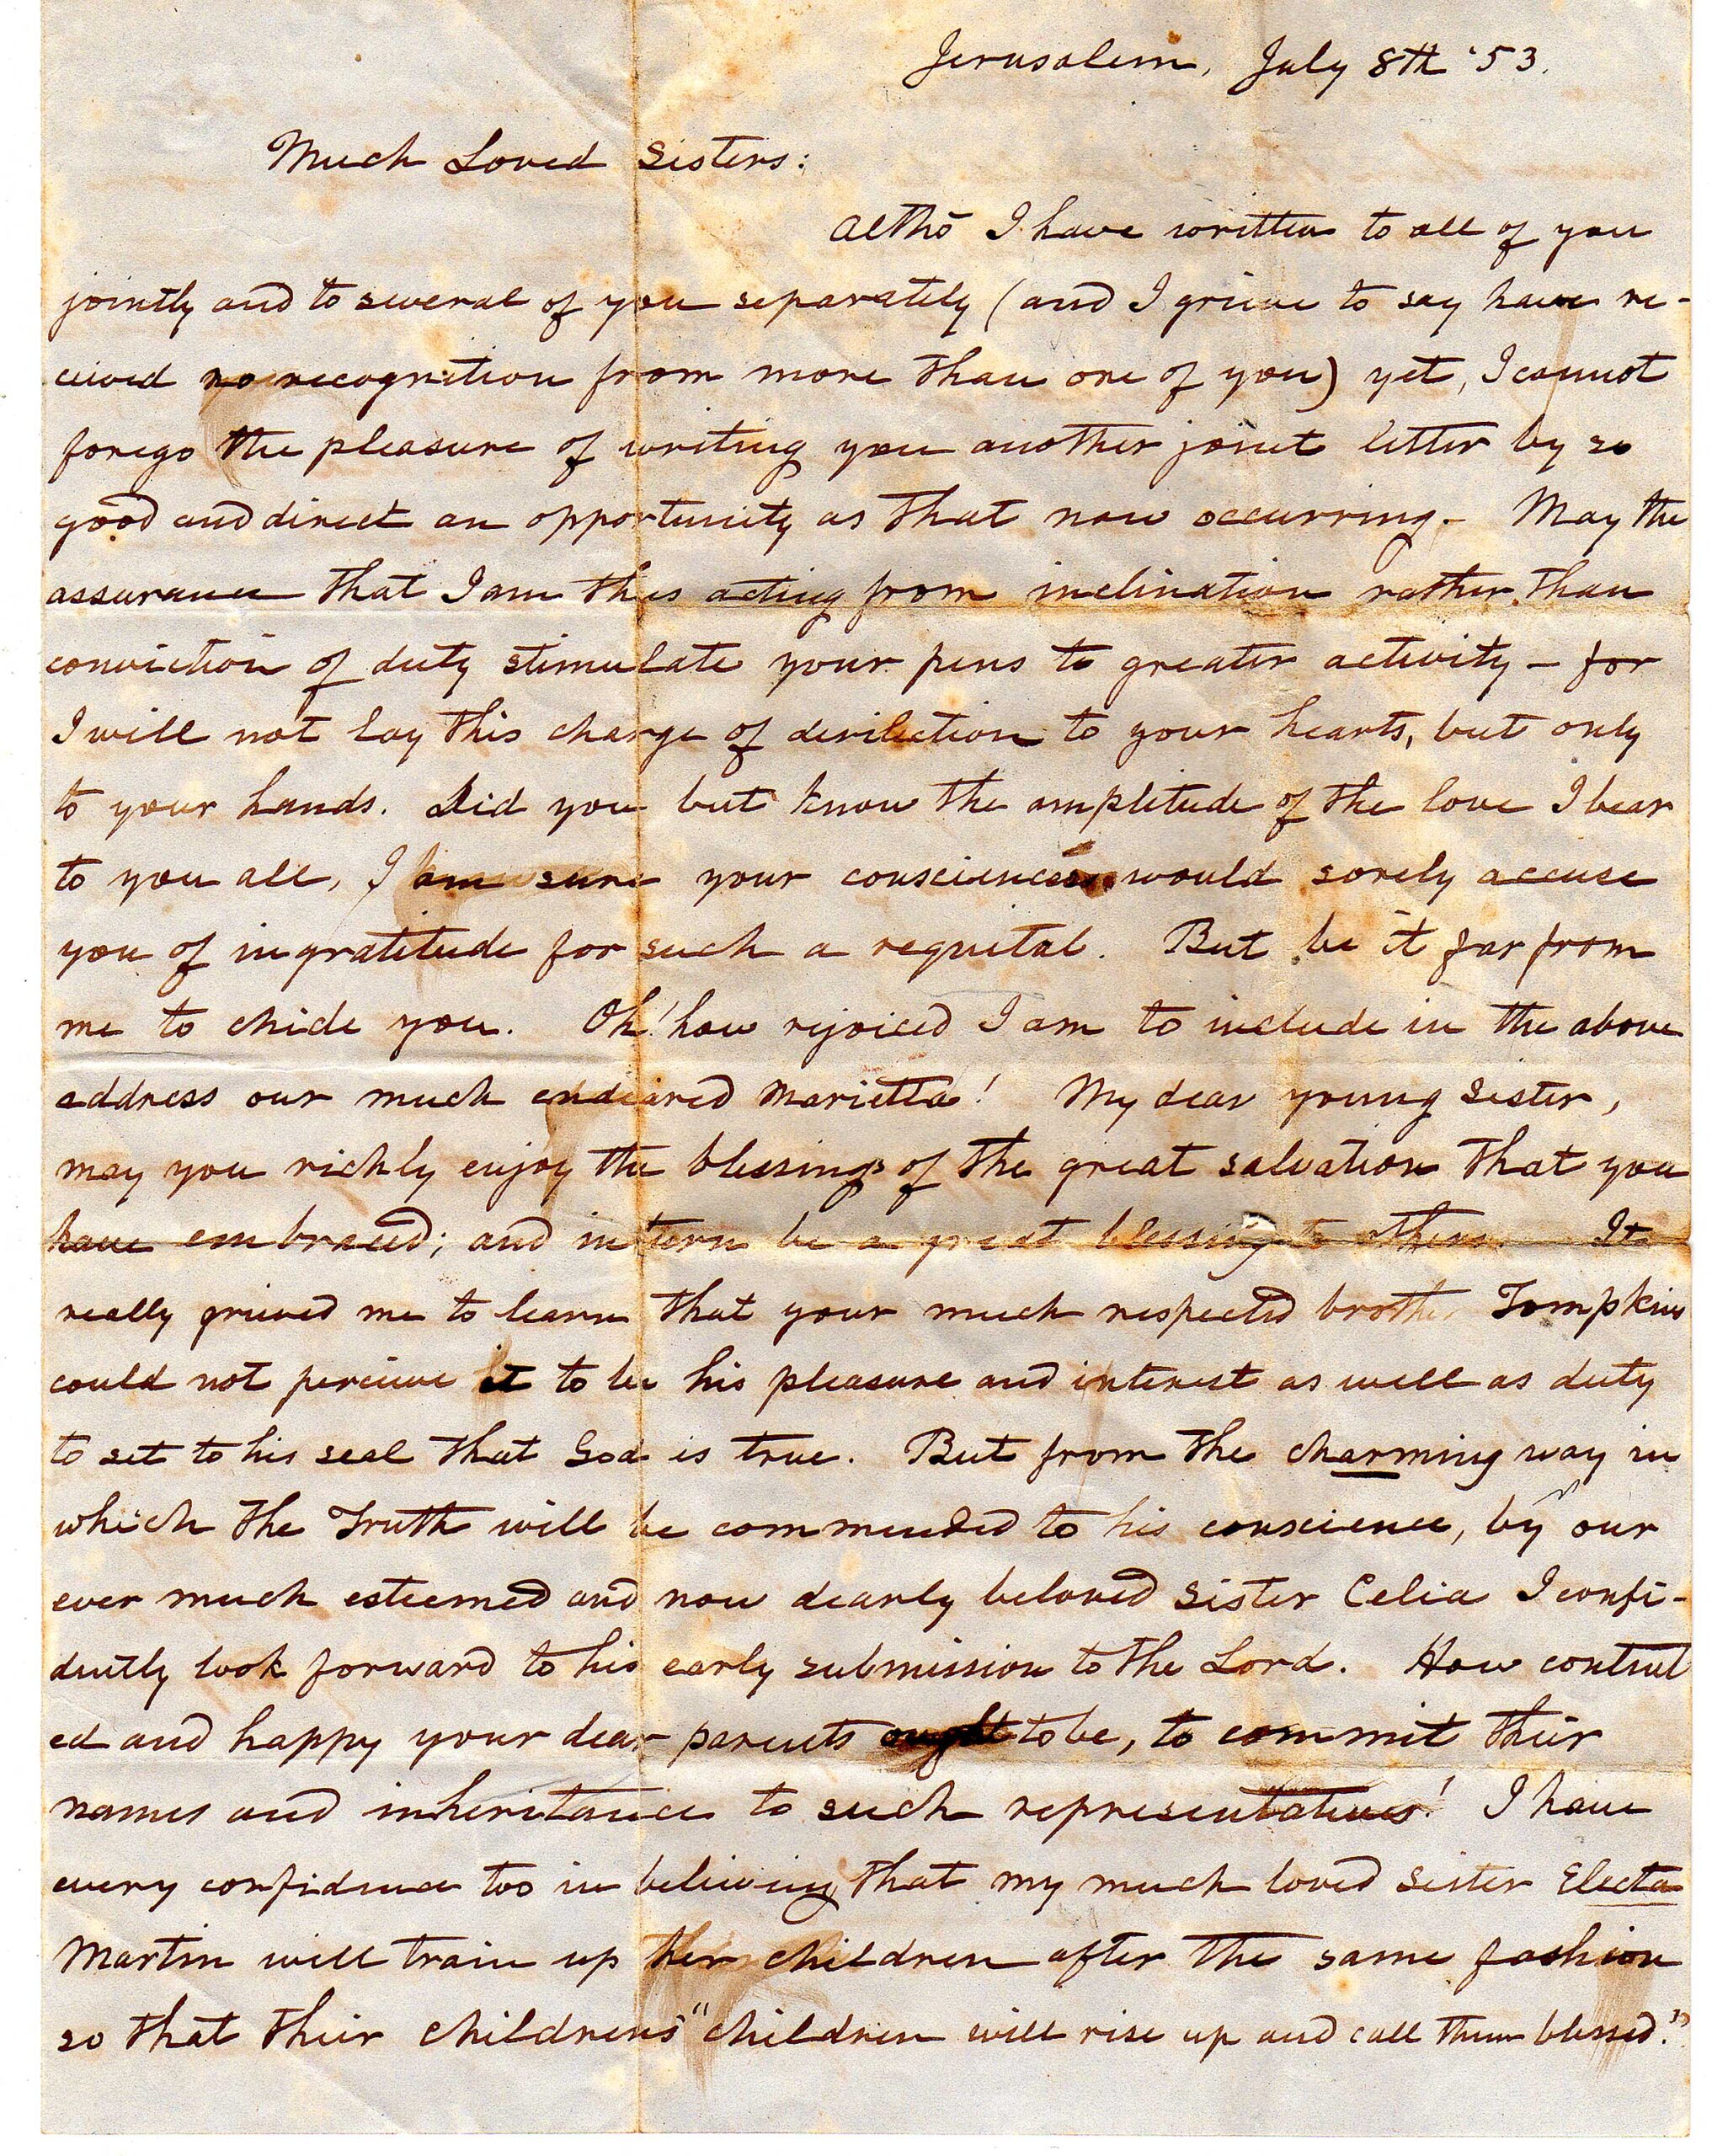 Jerusalem, July 8th '53.
Much Loved Sisters:
Altho I have written to all of you
jointly and to several of you separately (and I grieve to say have re-
ceived no recognition from more than one of you) yet, I cannot
forego the pleasure of writing you another joint letter by so
good and direct an opportunity as that now occurring. - May the
assurance that I am thus acting from inclination rather than
conviction of duty stimulate your pens to greater activity - for
I will not lay this charge of deriliction to your hearts, but only
to your hands. Did you but know the amplitude of the love I bear
to you all, I am sure your consciences would sorely accuse
you of ingratitude for such a requital. But be it far from
me to chide you. Oh! how rejoiced I am to include in the above
address our much endeared Marietta! My dear young sister,
may you richly enjoy the blessings of the great salvation that you
have embraced; and in turn be a great blessing to others. It
really grieved me to learn that your much respected brother Tompkins
could not perceive it to be his pleasure and interest as well as duty
to set to his seal that God is true. But from the charming way in
which the Truth will be commended to his conscience, by our
ever much esteemed and now dearly beloved sister Celia I confi-
dently look forward to his early submission to the Lord. How content
ed and happy your dear parents ought to be, to commit their
names and inheritance to such representatives! I have
every confidence too in believing that my much loved sister Electa
Martin will train up her children after the same fashion
so that their childrens "children will rise up and call them blessed."